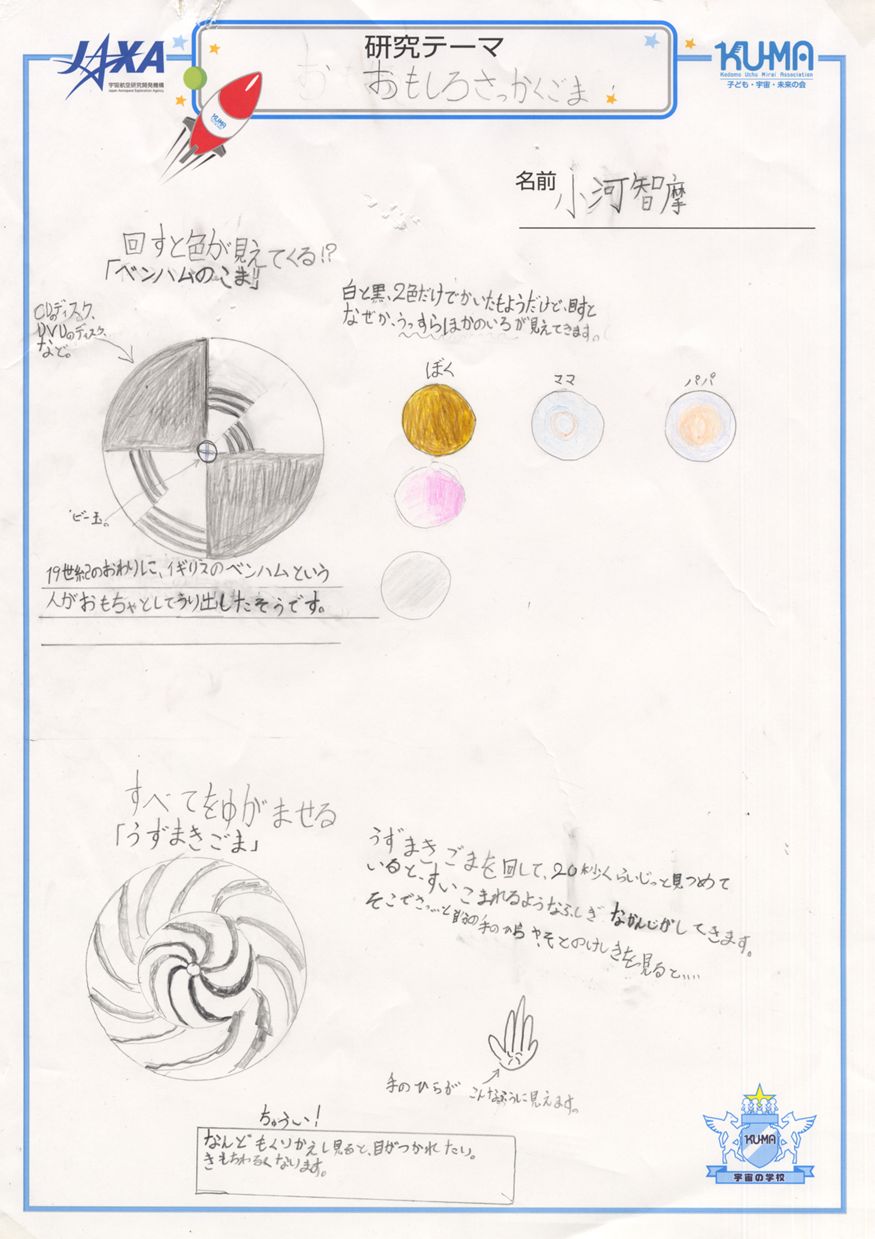 JAXA
宇宙航空研究開発機構
Japan Aerospace Exploration Agency
研究テーマ
おもしろさっかくごま
KU-MA
Kodomo Uchu Mirai Association
子ども・宇宙・未来の会
KUMA
名前 小河智摩
回すと色が見えてくる!?
「ベンハムのこま」
CDのディスク、
DVDのディスク、
など。
白と黒、2色だけでかいたもようだけど、回すと
なぜか、うっすらほかのいろが見えてきます。
ぼく
ママ
パパ
ビー玉。
19世紀のおわりに、イギリスのベンハムという
人がおもちゃとしてうり出したそうです。
すべてをゆがませる
「うずまきごま」
うずまきごまを回して、20秒くらいじっと見つめて
いると、すいこまれるようなふしぎなかんじがしてきます。
そこでさっ…と自分の手のひらやそとのけしきを見ると…
手のひらが こんなふうに見えます。
ちゅうい!
なんどもくりかえし見ると、目がつかれたり。
きもちわるくなります。
KU-MA
宇宙の学校